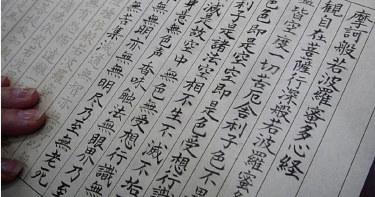 摩訶般若波羅蜜多心経
観自在菩薩行深般若波羅蜜
皆空度一切苦厄舎利子色不
色色即是空空即是色受想行識
利子是諸法空相不生不滅不垢
減是故空中無色無受想行識
身意無色声香味触法無眼界乃至
無明亦無無明尽乃至無老死
無苦集滅道